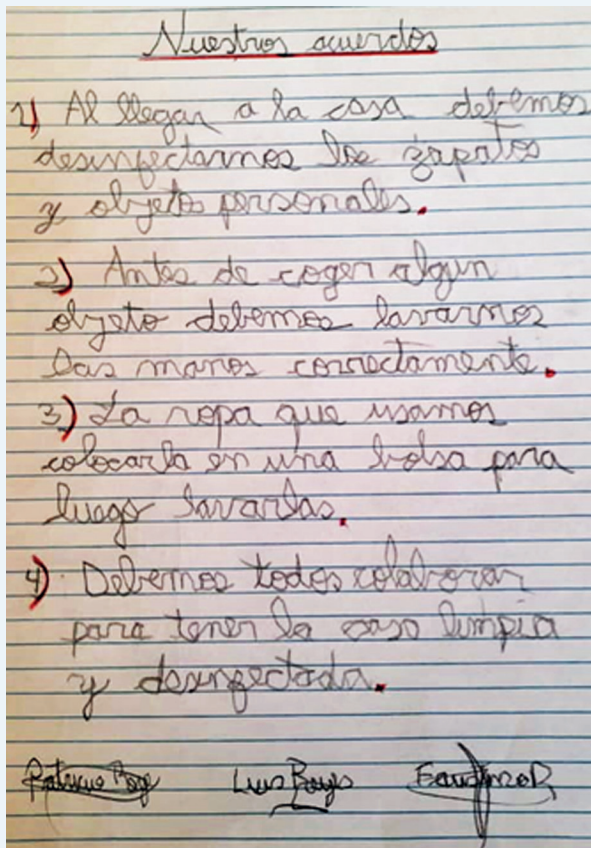 Nuestros acuerdos
1) Al llegar a la casa debemos
desinfectarnos los zapatos
y objetos personales.
2) Antes de coger algun
objeto debemos lavarnos
las manos correctamente.
3) La ropa que usamos
colocarla en una bolsa para
luego lavarlas.
4) Debemos todos colaborar
para tener la casa limpia
y desinfectada.
Luis